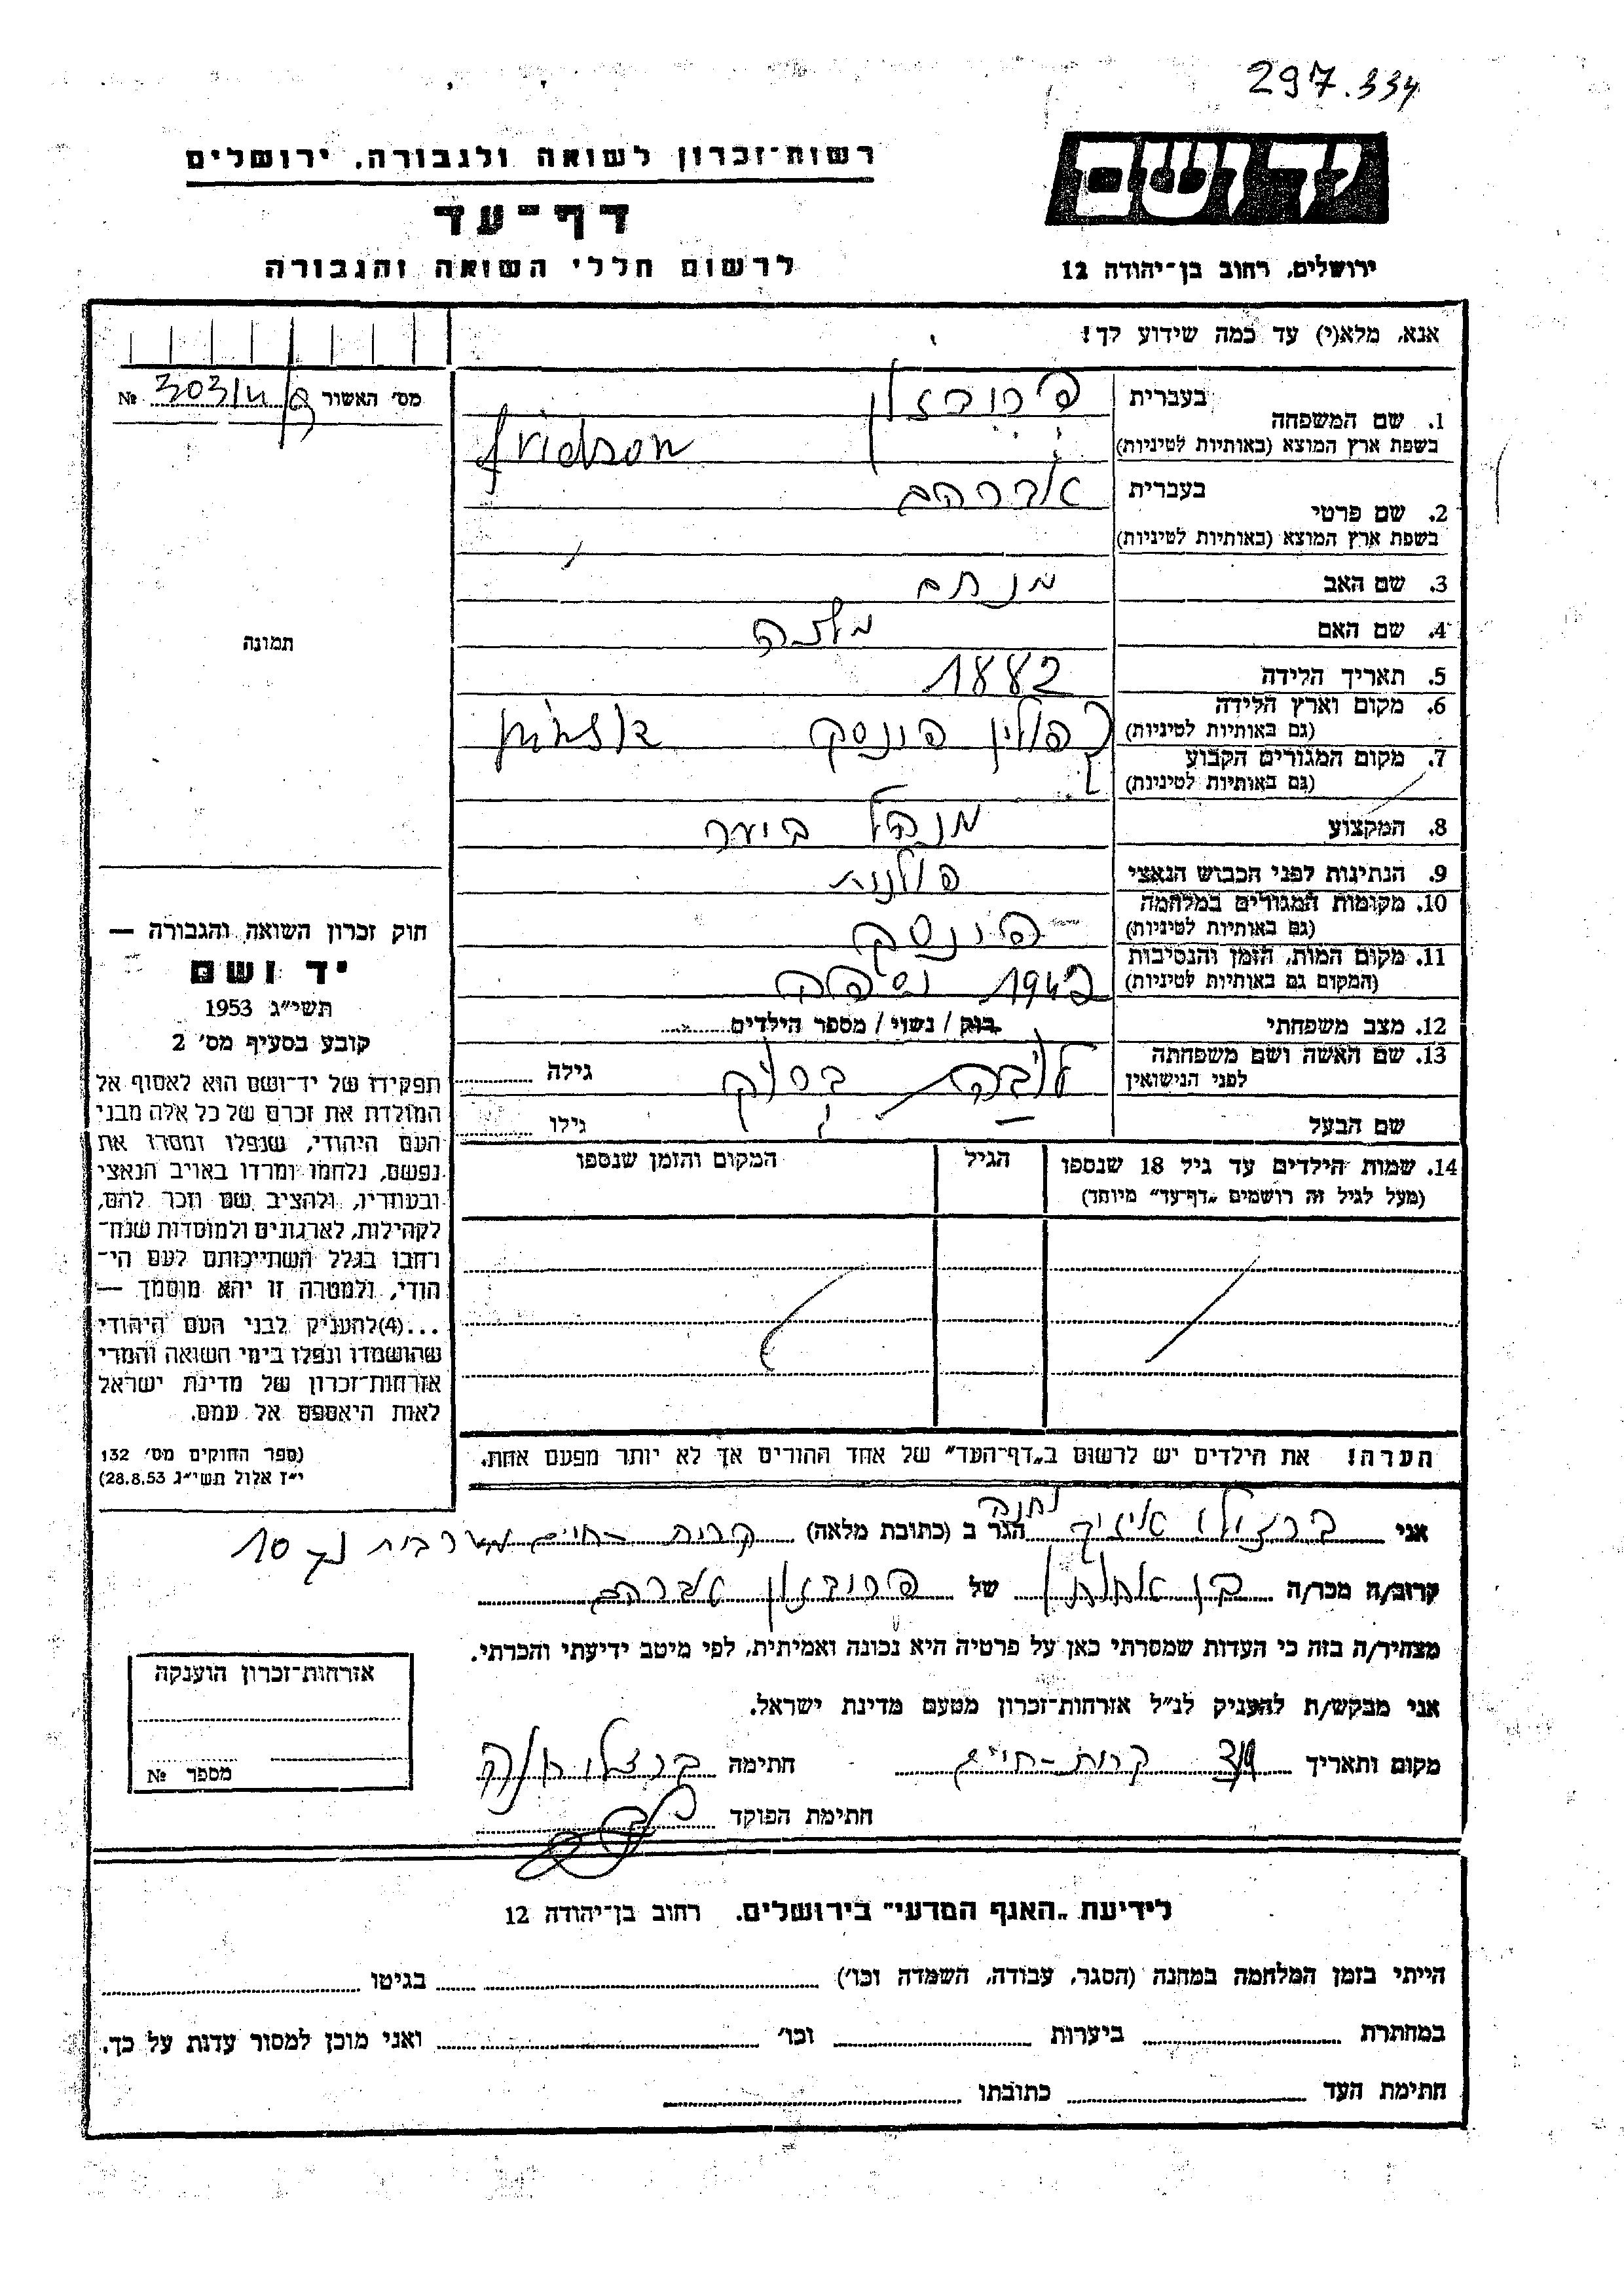 297.334
רשות־זכרון לשואה ולגבורה, ירושלים
יד ושם
דף־עד
לרשום חללי השואה והגבורה
ירושלים, רחוב בן־יהודה 12
אנא, מלא(י) עד כמה שידוע לך!
מס' האשור № 303/4
1. שם המשפחה בעברית פרידזון
בשפת ארץ המוצא (באותיות לטיניות) fridson
2. שם פרטי בעברית אברהם
בשפת ארץ המוצא (באותיות לטיניות)
3. שם האב מנחם
4. שם האם
תמונה
5. תאריך הלידה 1882
6. מקום וארץ הלידה פולין פינסק
(גם באותיות לטיניות)
7. מקום המגורים הקבוע
(גם באותיות לטיניות)
8. המקצוע מנהל ביער
9. הנתינות לפני הכבוש הנאצי פולנית
10. מקומות המגורים במלחמה פינסק
(גם באותיות לטיניות)
11. מקום המות, הזמן והנסיבות 1942 נספה
(המקום גם באותיות לטיניות)
12. מצב משפחתי רווק / נשוי / מספר הילדים
13. שם האשה ושם משפחתה גילה
לפני הנישואין
שם הבעל גילו
חוק זכרון השואה והגבורה —
יד ושם
תשי״ג 1953
קובע בסעיף מס' 2
תפקידו של יד־ושם הוא לאסוף אל
המולדת את זכרם של כל אלה מבני
העם היהודי, שנפלו ומסרו את
נפשם, נלחמו ומרדו באויב הנאצי
ובעוזריו, ולהציב שם וזכר להם,
לקהילות, לארגונים ולמוסדות שנח־
רחבו בגלל השתייכותם לעם הי־
הודי, ולמטרה זו יהא מוסמך —
...(4)להעניק לבני העם היהודי
שהושמדו ונפלו בימי השואה והמרי
אזרחות־זכרון של מדינת ישראל
לאות היאספם אל עמם.
(ספר החוקים מס' 132
י״ז אלול תשי״ג 28.8.53)
14. שמות הילדים עד גיל 18 שנספו הגיל המקום והזמן שנספו
(מעל לגיל זה רושמים „דף־עד״ מיוחד)
הערה! את הילדים יש לרשום ב„דף־העד״ של אחד ההורים אך לא יותר מפעם אחת.
אני ברזילי איזיק הגר ב (כתובת מלאה) קרית-חיים
קרוב/ה מכר/ה של פרידזון אברהם
מצהיר/ה בזה כי העדות שמסרתי כאן על פרטיה היא נכונה ואמיתית, לפי מיטב ידיעתי והכרתי.
אני מבקש/ת להעניק לנ״ל אזרחות־זכרון מטעם מדינת ישראל.
מקום ותאריך קרית-חיים חתימה
חתימת הפוקד
אזרחות־זכרון הוענקה
מספר №
לידיעת „האגף המדעי״ בירושלים. רחוב בן־יהודה 12
הייתי בזמן המלחמה במחנה (הסגר, עבודה, השמדה וכו') בגיטו
במחתרת ביערות וכו' ואני מוכן למסור עדות על כך.
חתימת העד כתובתו